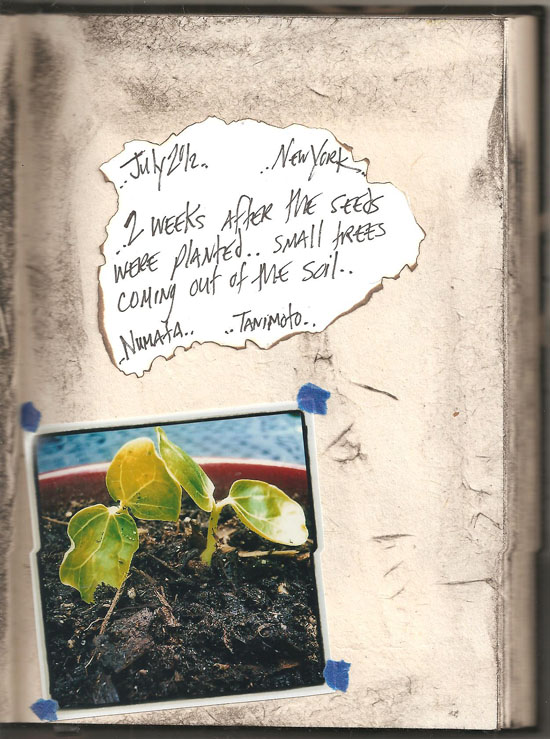 ..July 2012.. ..New York..
..2 weeks after the seeds
were planted.. small trees
coming out of the soil..
..Numata.. ..Tanimoto..